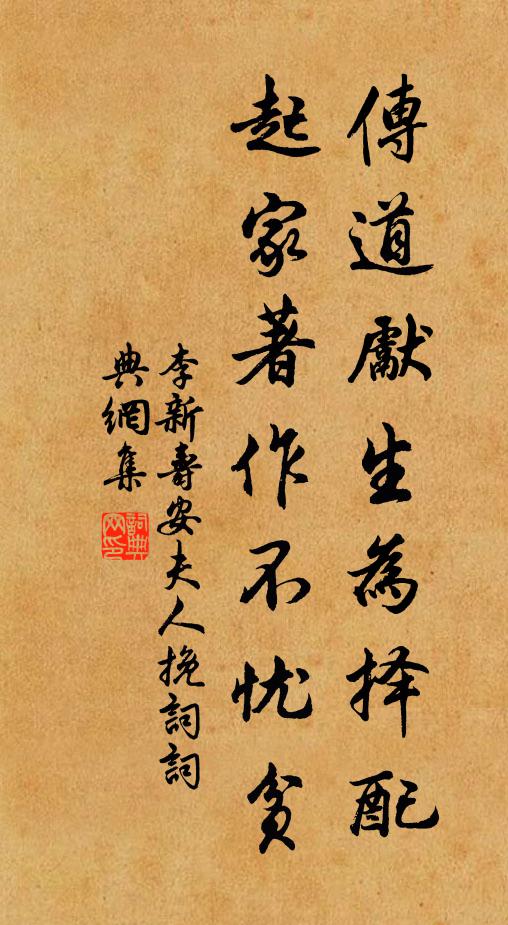 傳道獻生為择配
起家著作不忧貧
李新壽安夫人挽詞詞
典網集
詞典网印